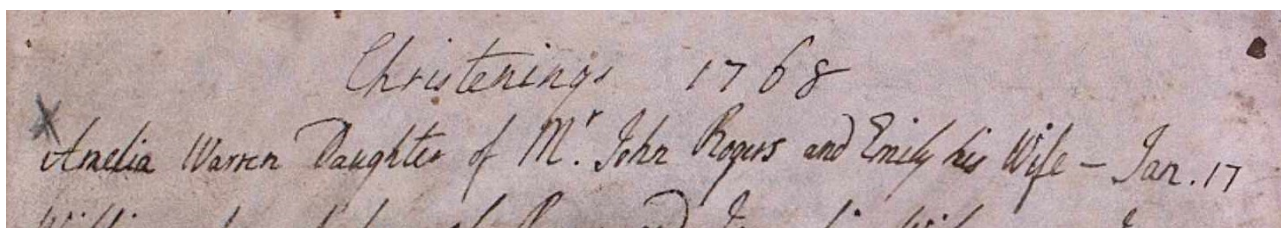 Christenings 1768
Amelia Warren Daughter of Mr. John Rogers and Emily his Wife – Jan. 17